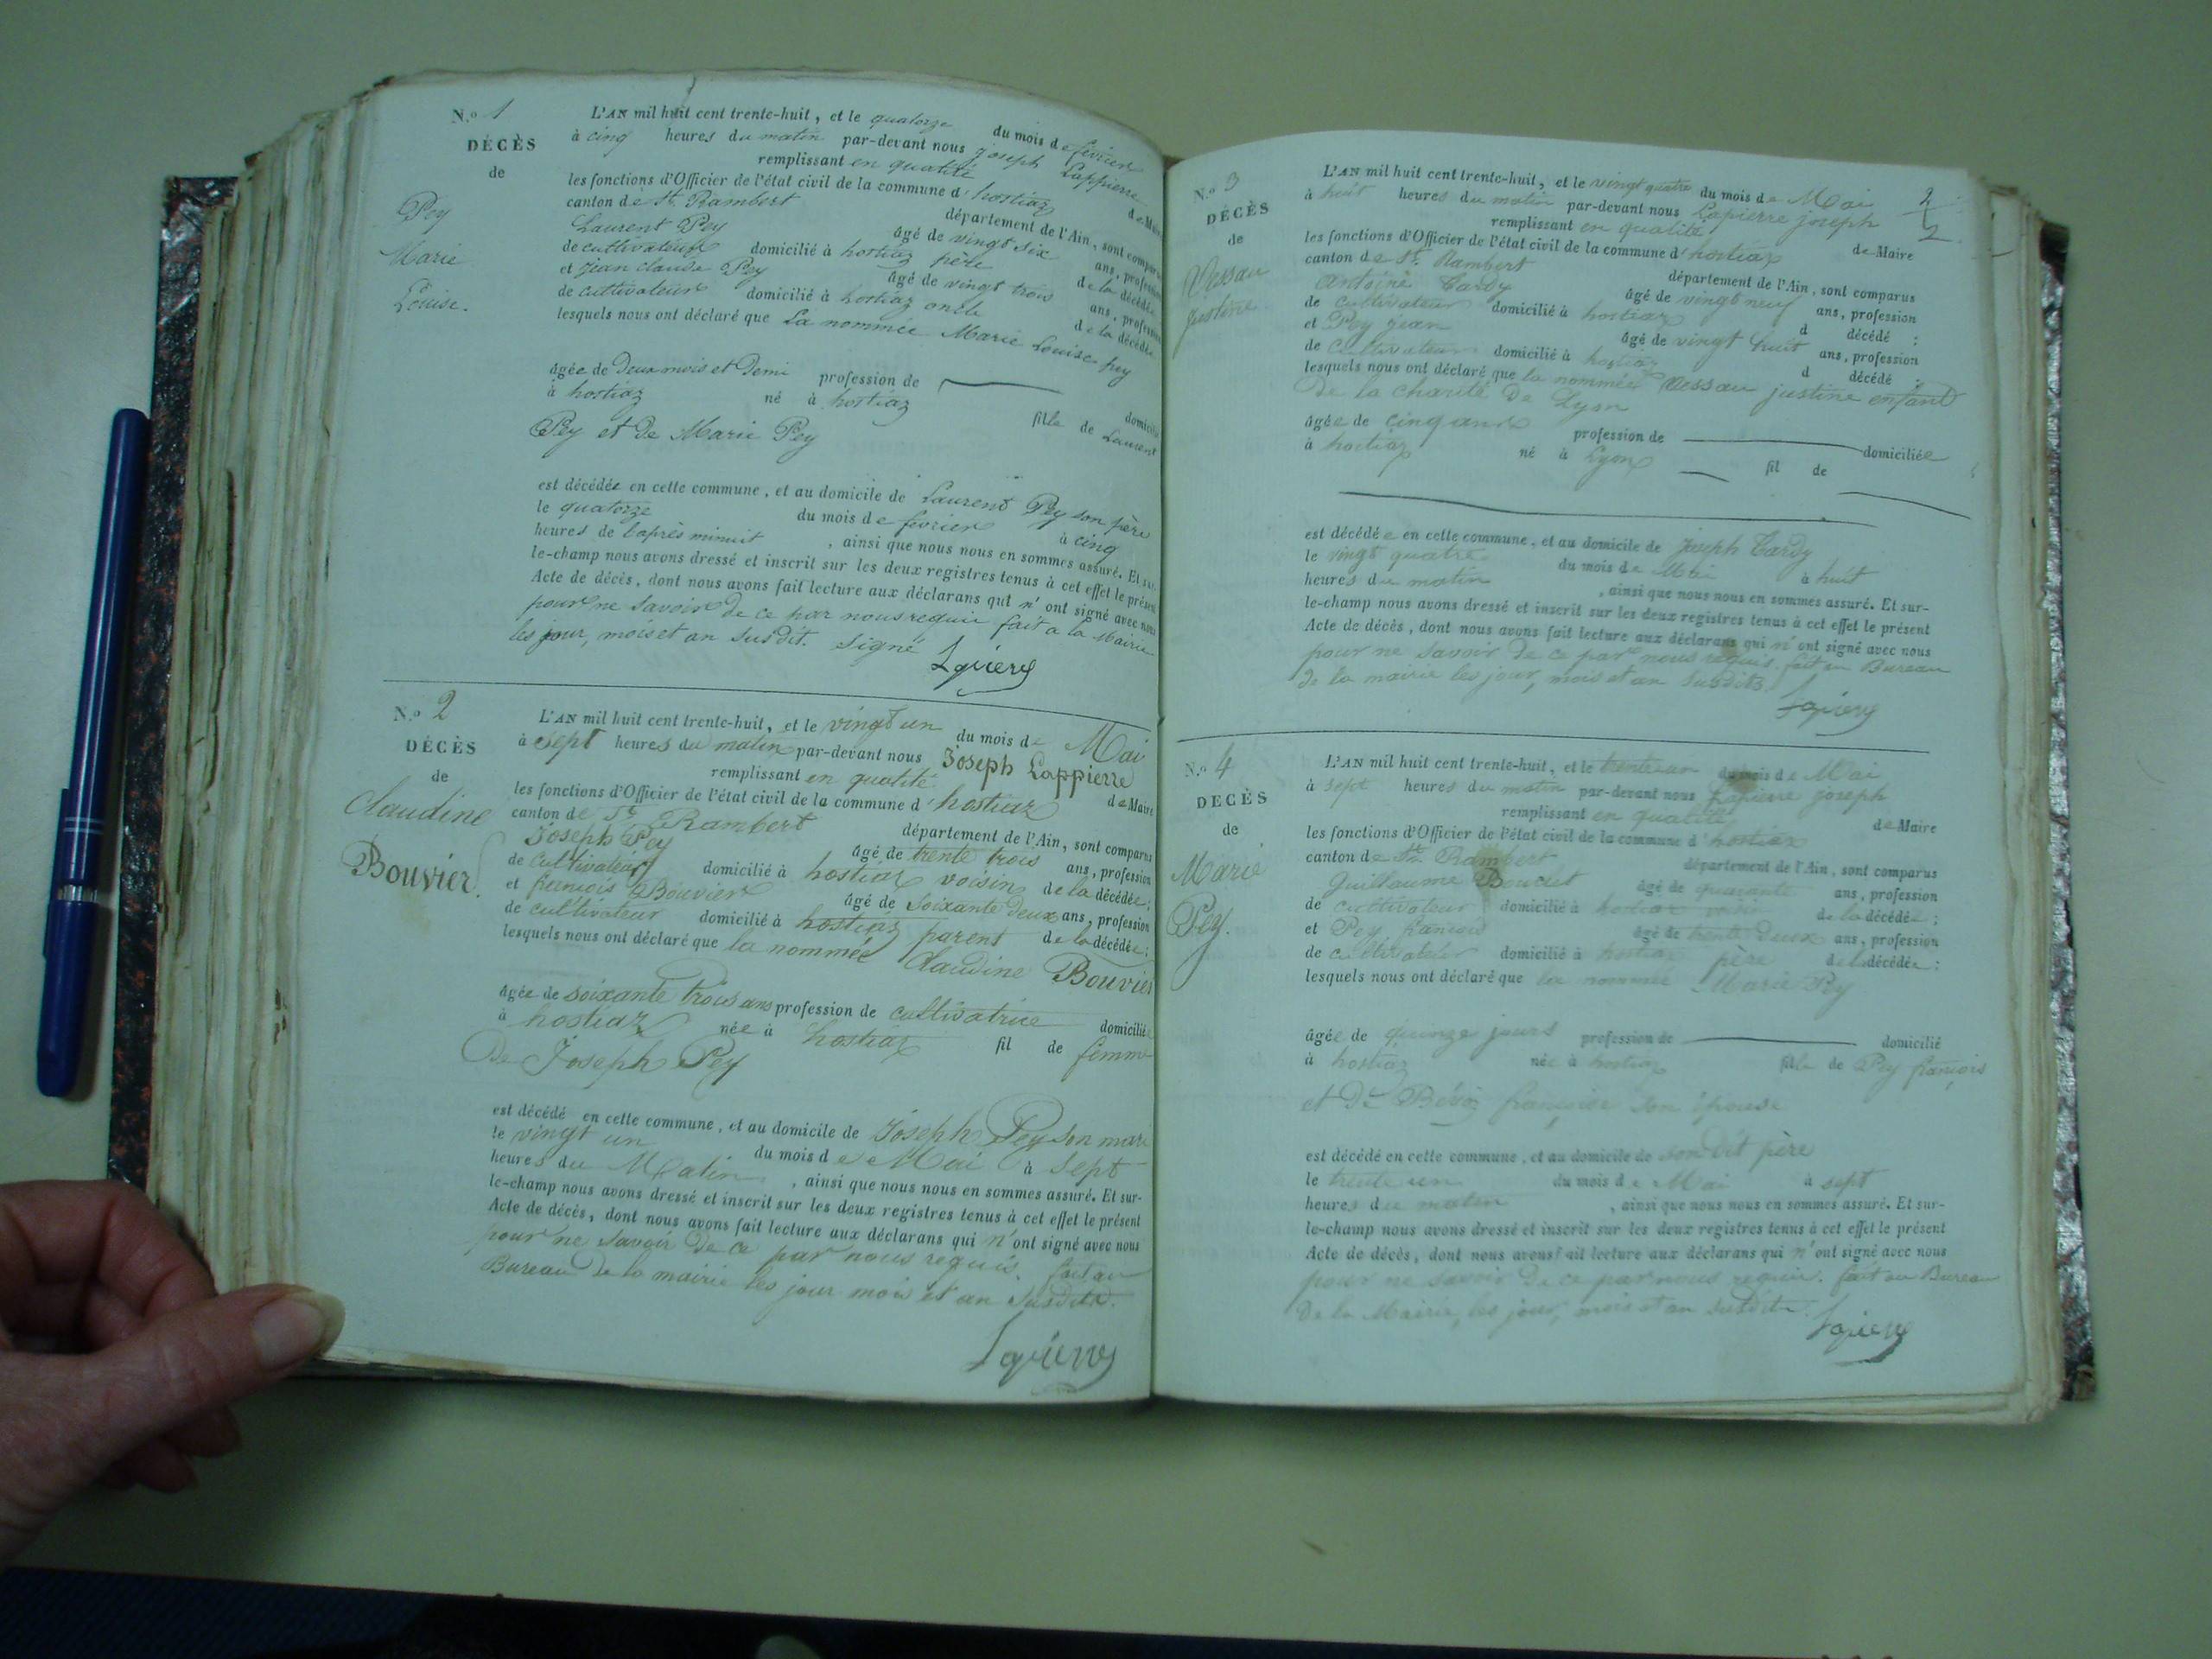 N.o 1
DÉCÈS
de
Pey
Marie
Louise.
L'AN mil huit cent trente-huit, et le quatorze du mois de février
à cinq heures du matin par-devant nous joseph Lappierre
remplissant en qualité de Maire
les fonctions d'Officier de l'état civil de la commune d'hostiaz
canton de St. Rambert département de l'Ain, sont comparus
Laurent Pey âgé de vingt six ans, profession
de cultivateur domicilié à hostiaz père de la décédée
et jean claude Pey âgé de vingt trois ans, profession
de cultivateur domicilié à hostiaz oncle de la décédée
lesquels nous ont déclaré que La nommée Marie Louise pey
âgée de Deux mois et Demi profession de domicilié
à hostiaz né à hostiaz fille de Laurent
Pey et De Marie Pey
est décédée en cette commune, et au domicile de Laurent Pey son père
le quatorze du mois de février à cinq
heures de l'après minuit, ainsi que nous nous en sommes assuré. Et sur-
le-champ nous avons dressé et inscrit sur les deux registres tenus à cet effet le présent
Acte de décès, dont nous avons fait lecture aux déclarans qui n'ont signé avec nous
pour ne Savoir De ce par nous requis fait a la Mairie
les jour, mois et an susdit. Signé Lapierre
N.o 2
DÉCÈS
de
Claudine
Bouvier.
L'AN mil huit cent trente-huit, et le vingt un du mois de Mai
à Sept heures du matin par-devant nous Joseph Lappierre
remplissant en qualité de Maire
les fonctions d'Officier de l'état civil de la commune d'hostiaz
canton de St. Rambert département de l'Ain, sont comparus
Joseph Pey âgé de trente trois ans, profession
de cultivateur domicilié à hostiaz voisin de la décédée;
et francois Bouvier âgé de Soixante Deux ans, profession
de cultivateur domicilié à hostiaz parent de la décédée;
lesquels nous ont déclaré que la nommée Claudine Bouvier
âgée de soixante trois ans profession de cultivatrice domiciliée
à hostiaz née à hostiaz fil de femme
De Joseph Pey
est décédé en cette commune, et au domicile de Joseph Pey son mari
le vingt un du mois de Mai à Sept
heures du Matin, ainsi que nous nous en sommes assuré. Et sur-
le-champ nous avons dressé et inscrit sur les deux registres tenus à cet effet le présent
Acte de décès, dont nous avons fait lecture aux déclarans qui n'ont signé avec nous
pour ne Savoir De ce par nous requis. fait au
Bureau De la mairie les jour mois et an Susdits.
Lapierre
2
2
N.o 3
DÉCÈS
de
Vessau
justine
L'AN mil huit cent trente-huit, et le vingt quatre du mois de Mai
à huit heures du matin par-devant nous Lapierre joseph
remplissant en qualité de Maire
les fonctions d'Officier de l'état civil de la commune d'hostiaz
canton de St. Rambert département de l'Ain, sont comparus
Antoine Cardy âgé de vingt neuf ans, profession
de cultivateur domicilié à hostiaz d décédé ;
et Pey jean âgé de vingt huit ans, profession
de cultivateur domicilié à hostiaz d décédé ;
lesquels nous ont déclaré que la nommée Vessau justine enfant
De la charité De Lyon
âgée de cinq ans profession de domiciliée
à hostiaz né à Lyon fil de
est décédée en cette commune, et au domicile de Joseph Cardy
le vingt quatre du mois de Mai à huit
heures du matin, ainsi que nous nous en sommes assuré. Et sur-
le-champ nous avons dressé et inscrit sur les deux registres tenus à cet effet le présent
Acte de décès, dont nous avons fait lecture aux déclarans qui n'ont signé avec nous
pour ne Savoir De ce par nous requis. fait au Bureau
De la mairie les jour, mois et an susdits
Lapierre
N.o 4
DECÈS
de
Marie
Pey.
L'AN mil huit cent trente-huit, et le trente un du mois de Mai
à sept heures du matin par-devant nous Lapierre joseph
remplissant en qualité de Maire
les fonctions d'Officier de l'état civil de la commune d'hostiaz
canton de St. Rambert département de l'Ain, sont comparus
Guillaume Boudet âgé de quarante ans, profession
de cultivateur domicilié à hostiaz voisin de la décédée;
et Pey francois âgé de trente Deux ans, profession
de cultivateur domicilié à hostiaz père de la décédée;
lesquels nous ont déclaré que la nommée Marie Pey
âgée de quinze jours profession de domicilié
à hostiaz née à hostiaz fille de Pey francois
et De francoise son épouse
est décédé en cette commune, et au domicile de son Dit père
le trente un du mois de Mai à sept
heures du matin, ainsi que nous nous en sommes assuré. Et sur-
le-champ nous avons dressé et inscrit sur les deux registres tenus à cet effet le présent
Acte de décès, dont nous avons fait lecture aux déclarans qui n'ont signé avec nous
pour ne savoir De ce par nous requis. fait au Bureau
De la Mairie, les jour, mois et an susdits.
Lapierre